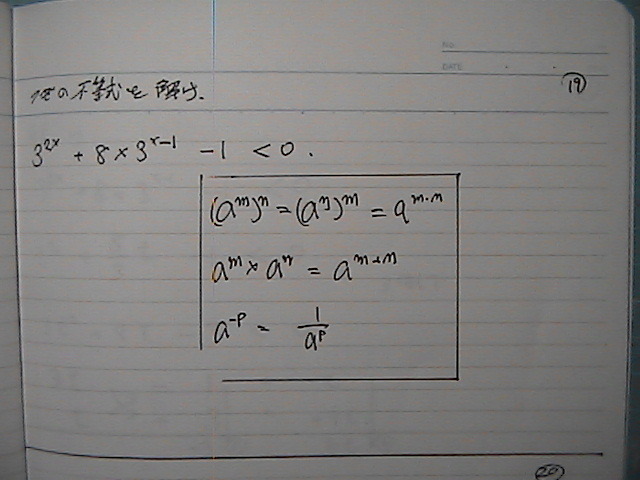 NO.
DATE
19
次の不等式を解け.
3^{2x} + 8 × 3^{x-1} - 1 < 0 .
(a^m)^n = (a^n)^m = a^{m·n}
a^m × a^n = a^{m+n}
a^{-p} = \frac{1}{a^p}
20